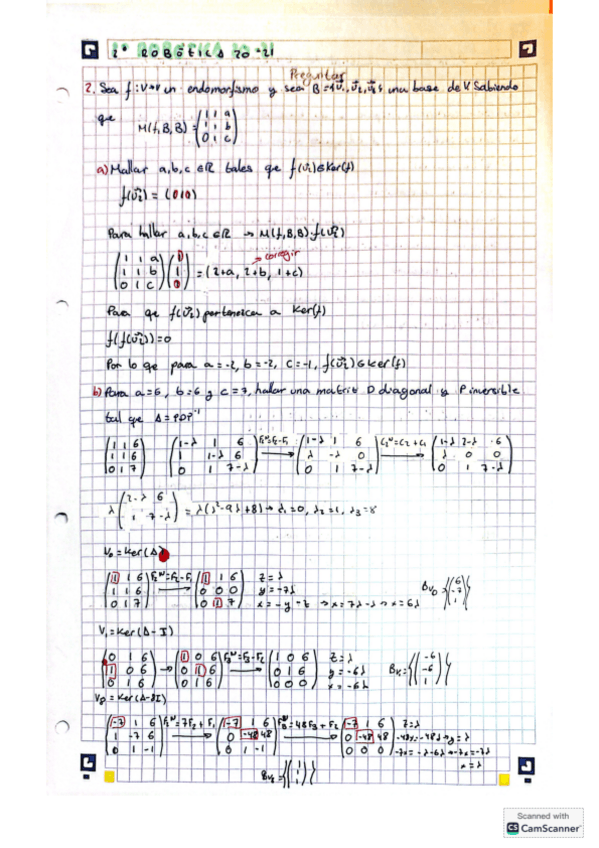 2º ROBÓTICA 20-21
Preguntar
2. Sea f: V→V un endomorfismo y sea B={v⃗₁, v⃗₂, v⃗₃} una base de V. Sabiendo
que M(f,B,B) = (1 1 a; 1 1 b; 0 1 c)
a) Hallar a,b,c ∈ℝ tales que f(v⃗₂)∈Ker(f)
f(v⃗₂) = (010)
Para hallar a,b,c ∈ℝ → M(f,B,B)·f(v⃗₂)
corregir
(1 1 a; 1 1 b; 0 1 c) (1; 1; 0) = (2+a, 2+b, 1+c)
Para que f(v⃗₂) pertenezca a Ker(f)
f(f(v⃗₂))=0
Por lo qe para a=-2, b=-2, c=-1, f(v⃗₂)∈Ker(f)
b) Para a=6, b=6 y c=7, hallar una matriz D diagonal y P inversible
tal que A=PDP⁻¹
(1 1 6; 1 1 6; 0 1 7) (1-λ 1 6; 1 1-λ 6; 0 1 7-λ) → (1-λ 1 6; λ -λ 0; 0 1 7-λ) C₂ᴺ=C₂+C₁ → (1-λ 2-λ 6; λ 0 0; 0 1 7-λ)
λ (2-λ 6; 1 7-λ) = λ(λ²-9λ+8) → λ₁=0, λ₂=1, λ₃=8
V₀=Ker(A)
(1 1 6; 1 1 6; 0 1 7) F₂ᴺ=F₂-F₁ → (1 1 6; 0 0 0; 0 1 7) z=λ
y=-7λ
x=-y-z → x=7λ-λ → x=6λ
B_V₀={(6; -7; 1)}
V₁=Ker(A-I)
(0 1 6; 1 0 6; 0 1 6) → (1 0 6; 0 1 6; 0 1 6) F₃ᴺ=F₃-F₂ → (1 0 6; 0 1 6; 0 0 0) z=λ
y=-6λ
x=-6λ
B_V₁={(-6; -6; 1)}
V₈=Ker(A-8I)
(-7 1 6; 1 -7 6; 0 1 -1) F₂ᴺ=7F₂+F₁ → (-7 1 6; 0 -48 48; 0 1 -1) F₃ᴺ=48F₃+F₂ → (-7 1 6; 0 -48 48; 0 0 0) z=λ
-48y=-48λ → y=λ
-7x=-λ-6λ → -7x=-7λ
x=λ
B_V₈={(1; 1; 1)}
Scanned with
CS CamScanner